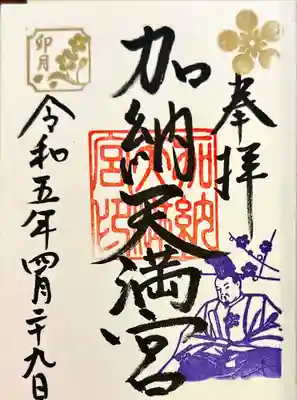 奉拝
加納天満宮
加納天満宮印
卯月
令和五年四月二十九日